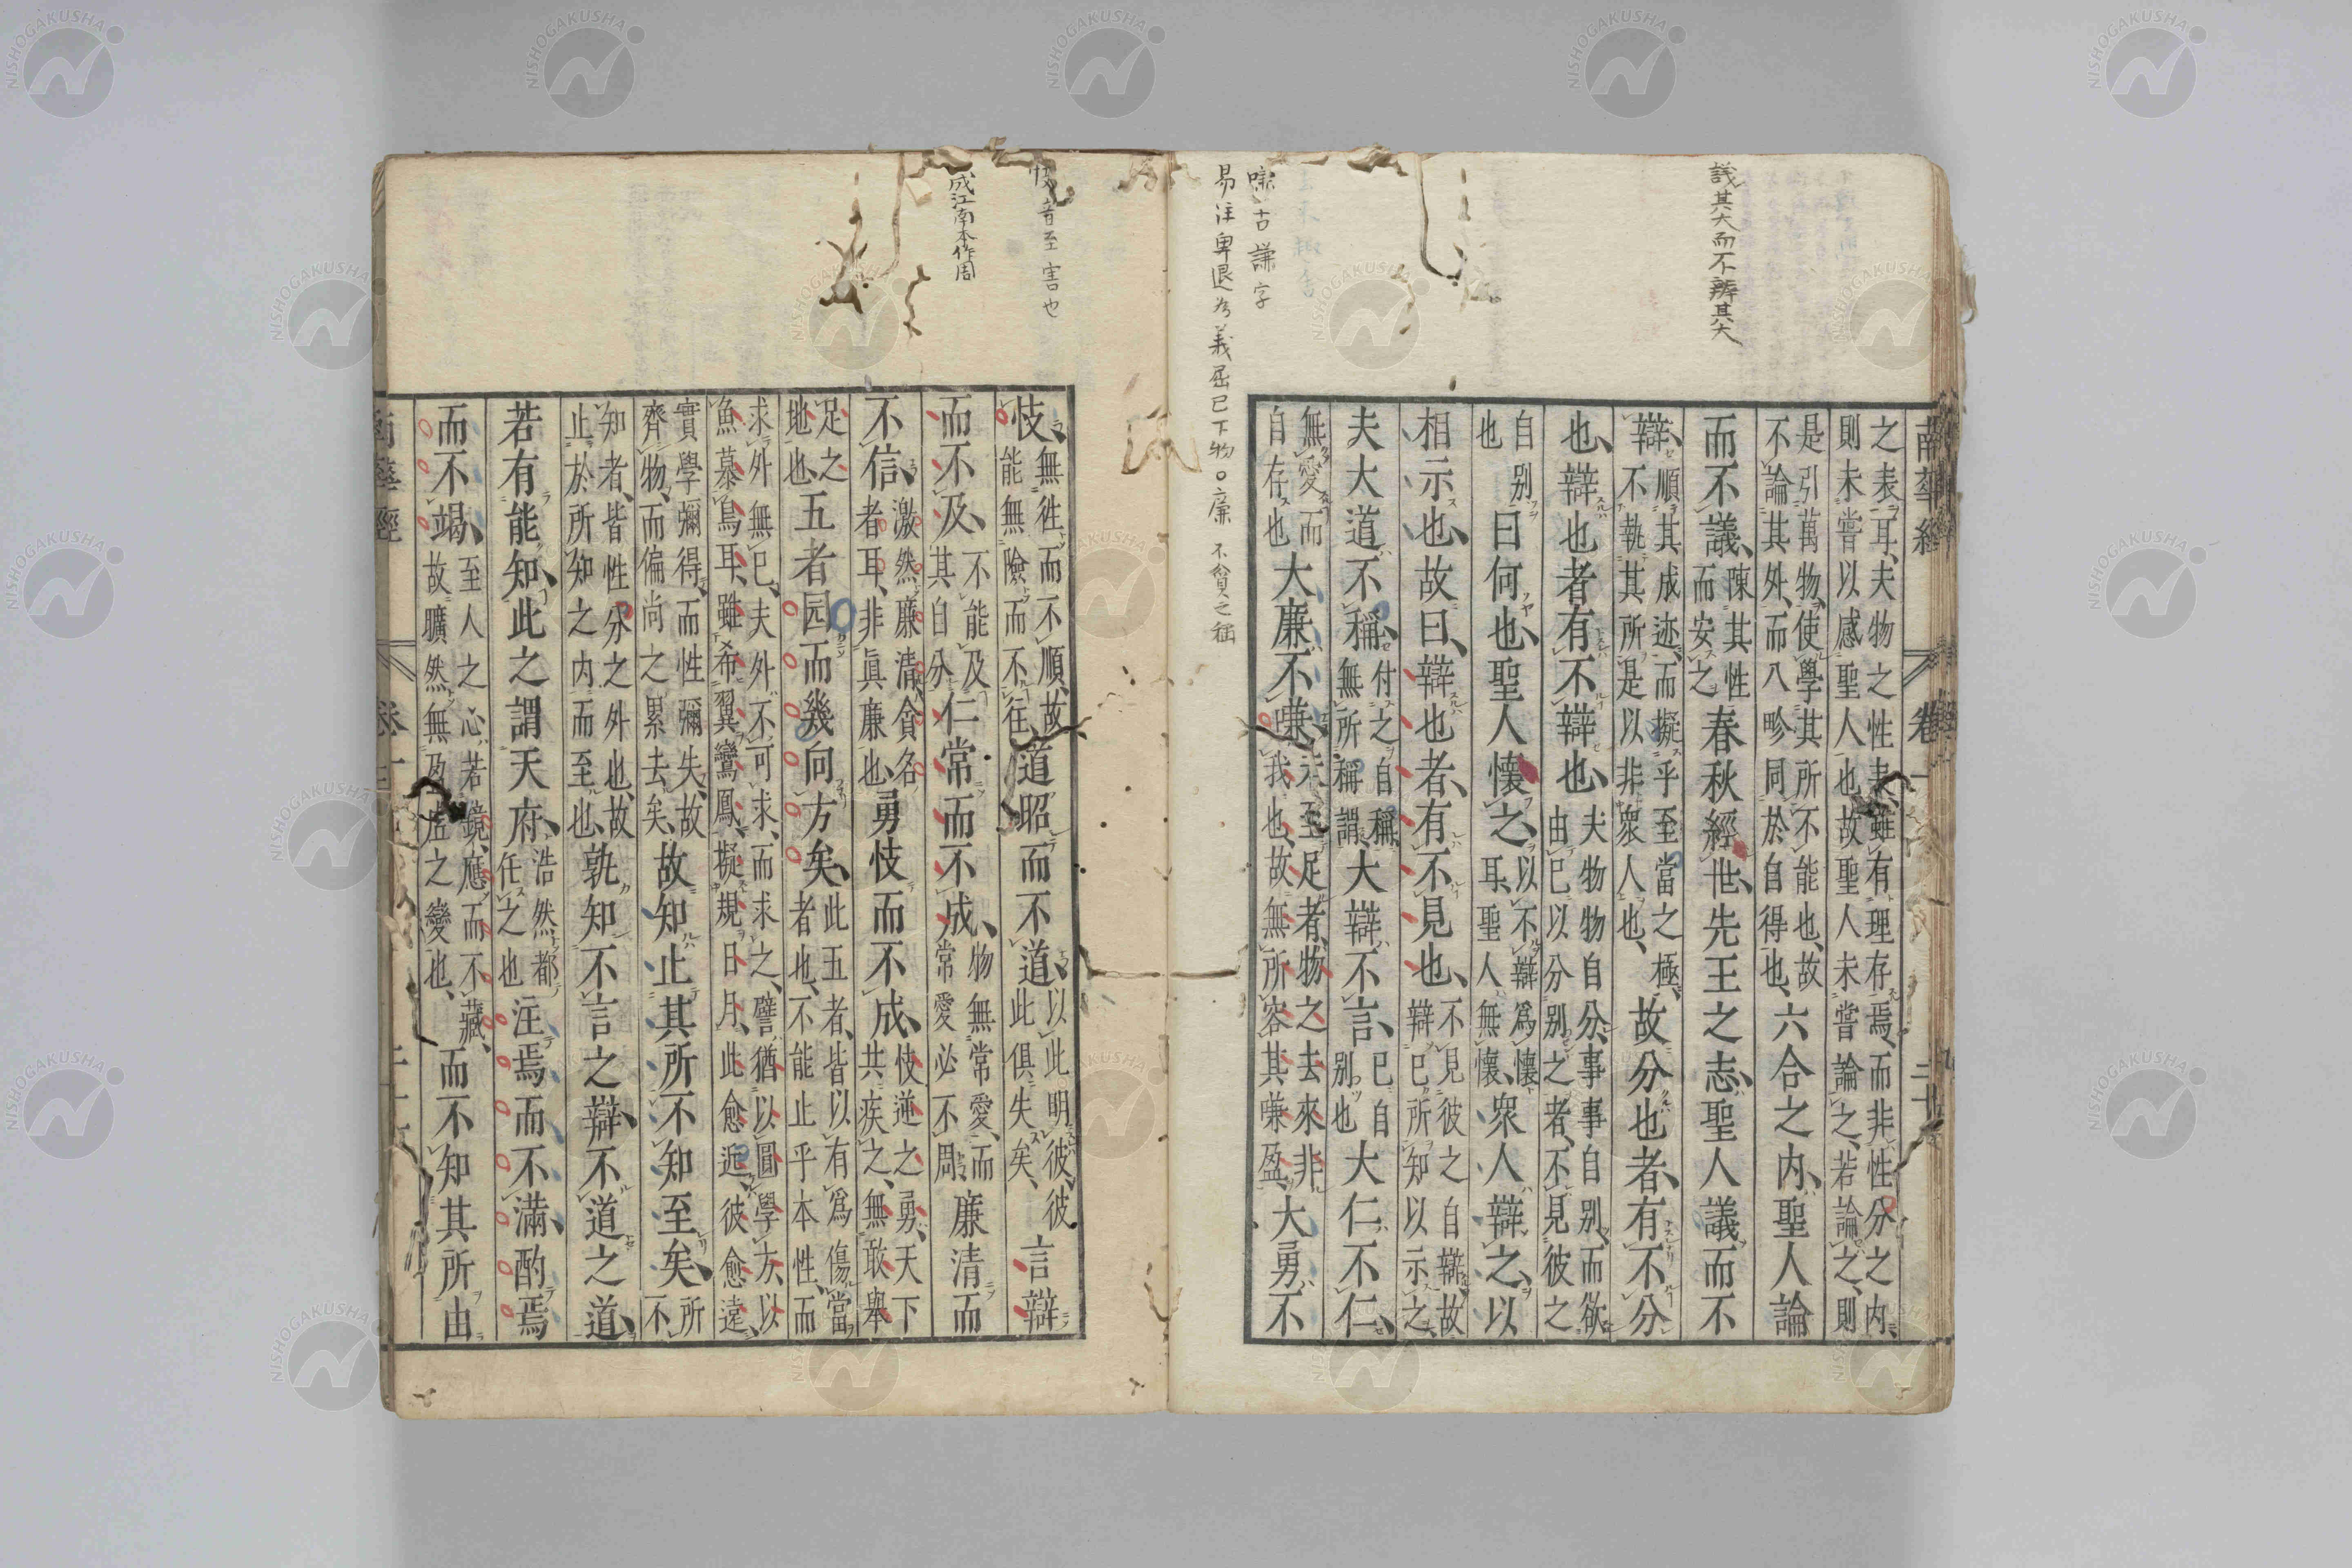 議其大而不辨其大
嗛古謙字
易注卑退為義屈已下物○廉 不貪之稱
南華經 卷一 二十
之表耳夫物之性表雖有理存焉而非性分之内
則未嘗以感聖人也故聖人未嘗論之若論之則
是引萬物使學其所不能也故
不論其外而八畛同於自得也
六合之内聖人論
而不議陳其性
而安之
春秋經世先王之志聖人議而不
辯順其成迹而擬乎至當之極
不執其所是以非衆人也
故分也者有不分
也辯也者有不辯也夫物物自分事事自别而欲
由已以分别之者不見彼之
自别
也
曰何也聖人懷之以不辯為懷
耳聖人無懷
衆人辯之以
相示也故曰辯也者有不見也不見彼之自辯故
辯已所知以示之
夫大道不稱付之自稱
無所稱謂
大辯不言已自
别也
大仁不仁
無愛而
自存也
大廉不嗛夫至足者物之去來非
我也故無所容其嗛盈
大勇不
忮音至 害也
成江南本作周
忮無往而不順故
能無險而不往
道昭而不道以此明彼彼
此俱失矣
言辯
而不及不能及
其自分
仁常而不成物無常愛而
常愛必不周
廉清而
不信激然廉清貪名
者耳非真廉也
勇忮而不成忮逆之勇天下
共疾之無敢舉
足之
地也
五者园而幾向方矣此五者皆以有爲傷當
者也不能止乎本性而
求外無已夫外不可求而求之譬猶以圓學方以
魚慕鳥耳雖希翼鸞鳳擬規日月此愈近彼愈遠
實學彌得而性彌失故
齊物而偏尚之累去矣
故知止其所不知至矣所
不
知者皆性分之外也故
止於所知之内而至也
孰知不言之辯不道之道
若有能知此之謂天府浩然都
任之也
注焉而不滿酌焉
而不竭至人之心若鏡應而不藏
故曠然無盈虛之變也
而不知其所由
南華經 卷一